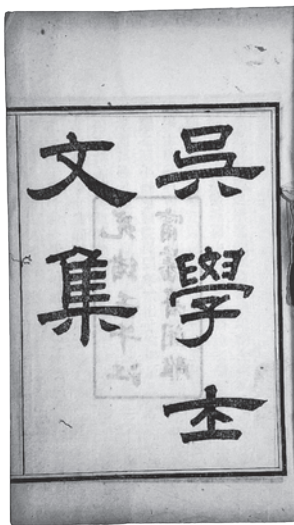 吳學士
文集